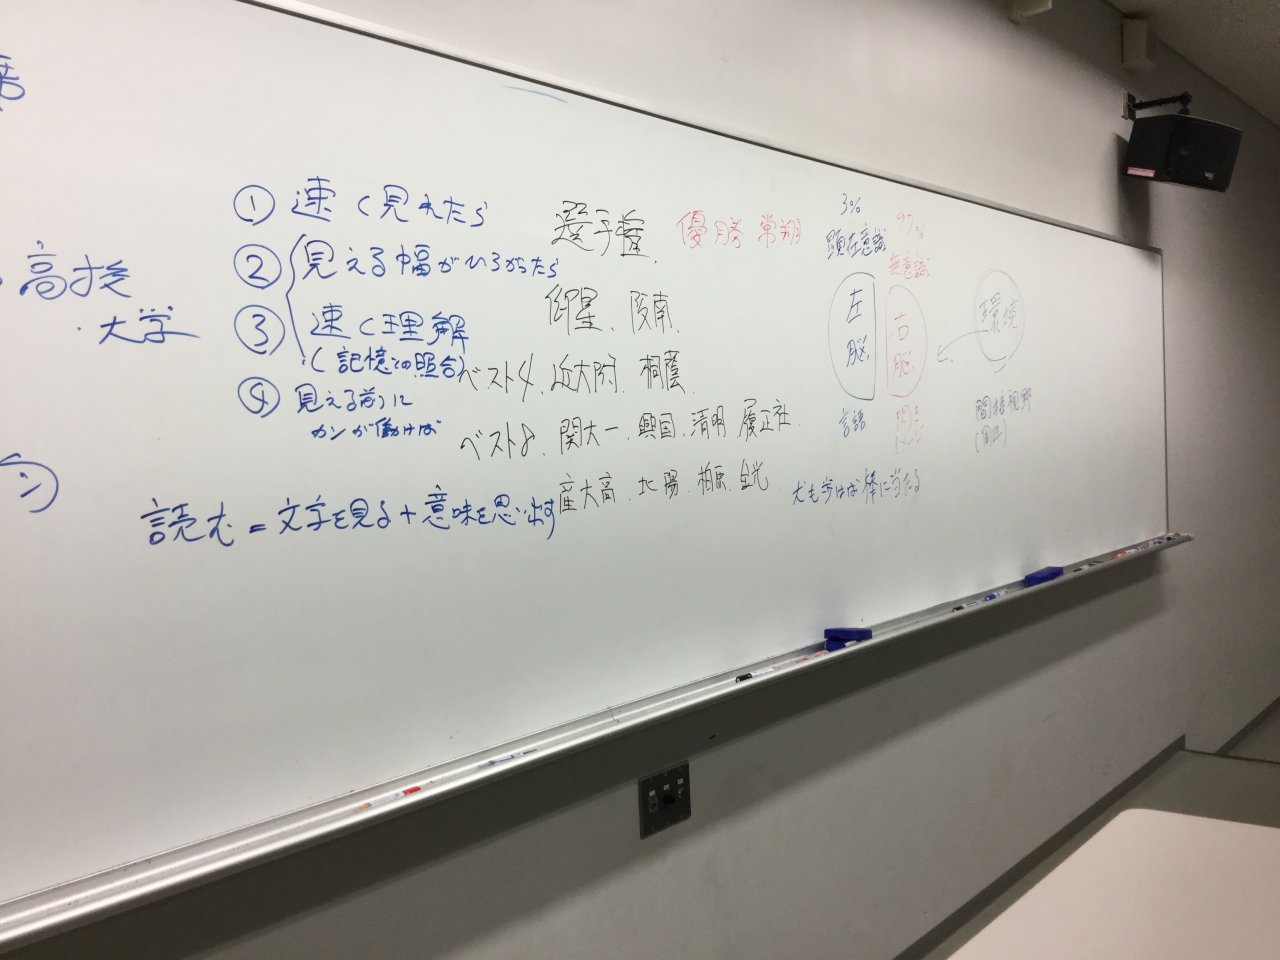 ・高校
・大学
① 速く見れたら
② 見える幅がひろがったら
③ 速く理解
(記憶との照合)
④ 見える前に
カンが働けば
読む = 文字を見る + 意味を思い出す
選手権 優勝 常翔
仰星、阪南
ベスト4、近大附、桐蔭
ベスト8、関大一、興国、清明、履正社
産大高、北陽、柏原、金光
3%
顕在意識
97%
無意識
左脳
右脳
環境
言語
イメージ
間接視野
(周辺)
犬も歩けば棒に当たる